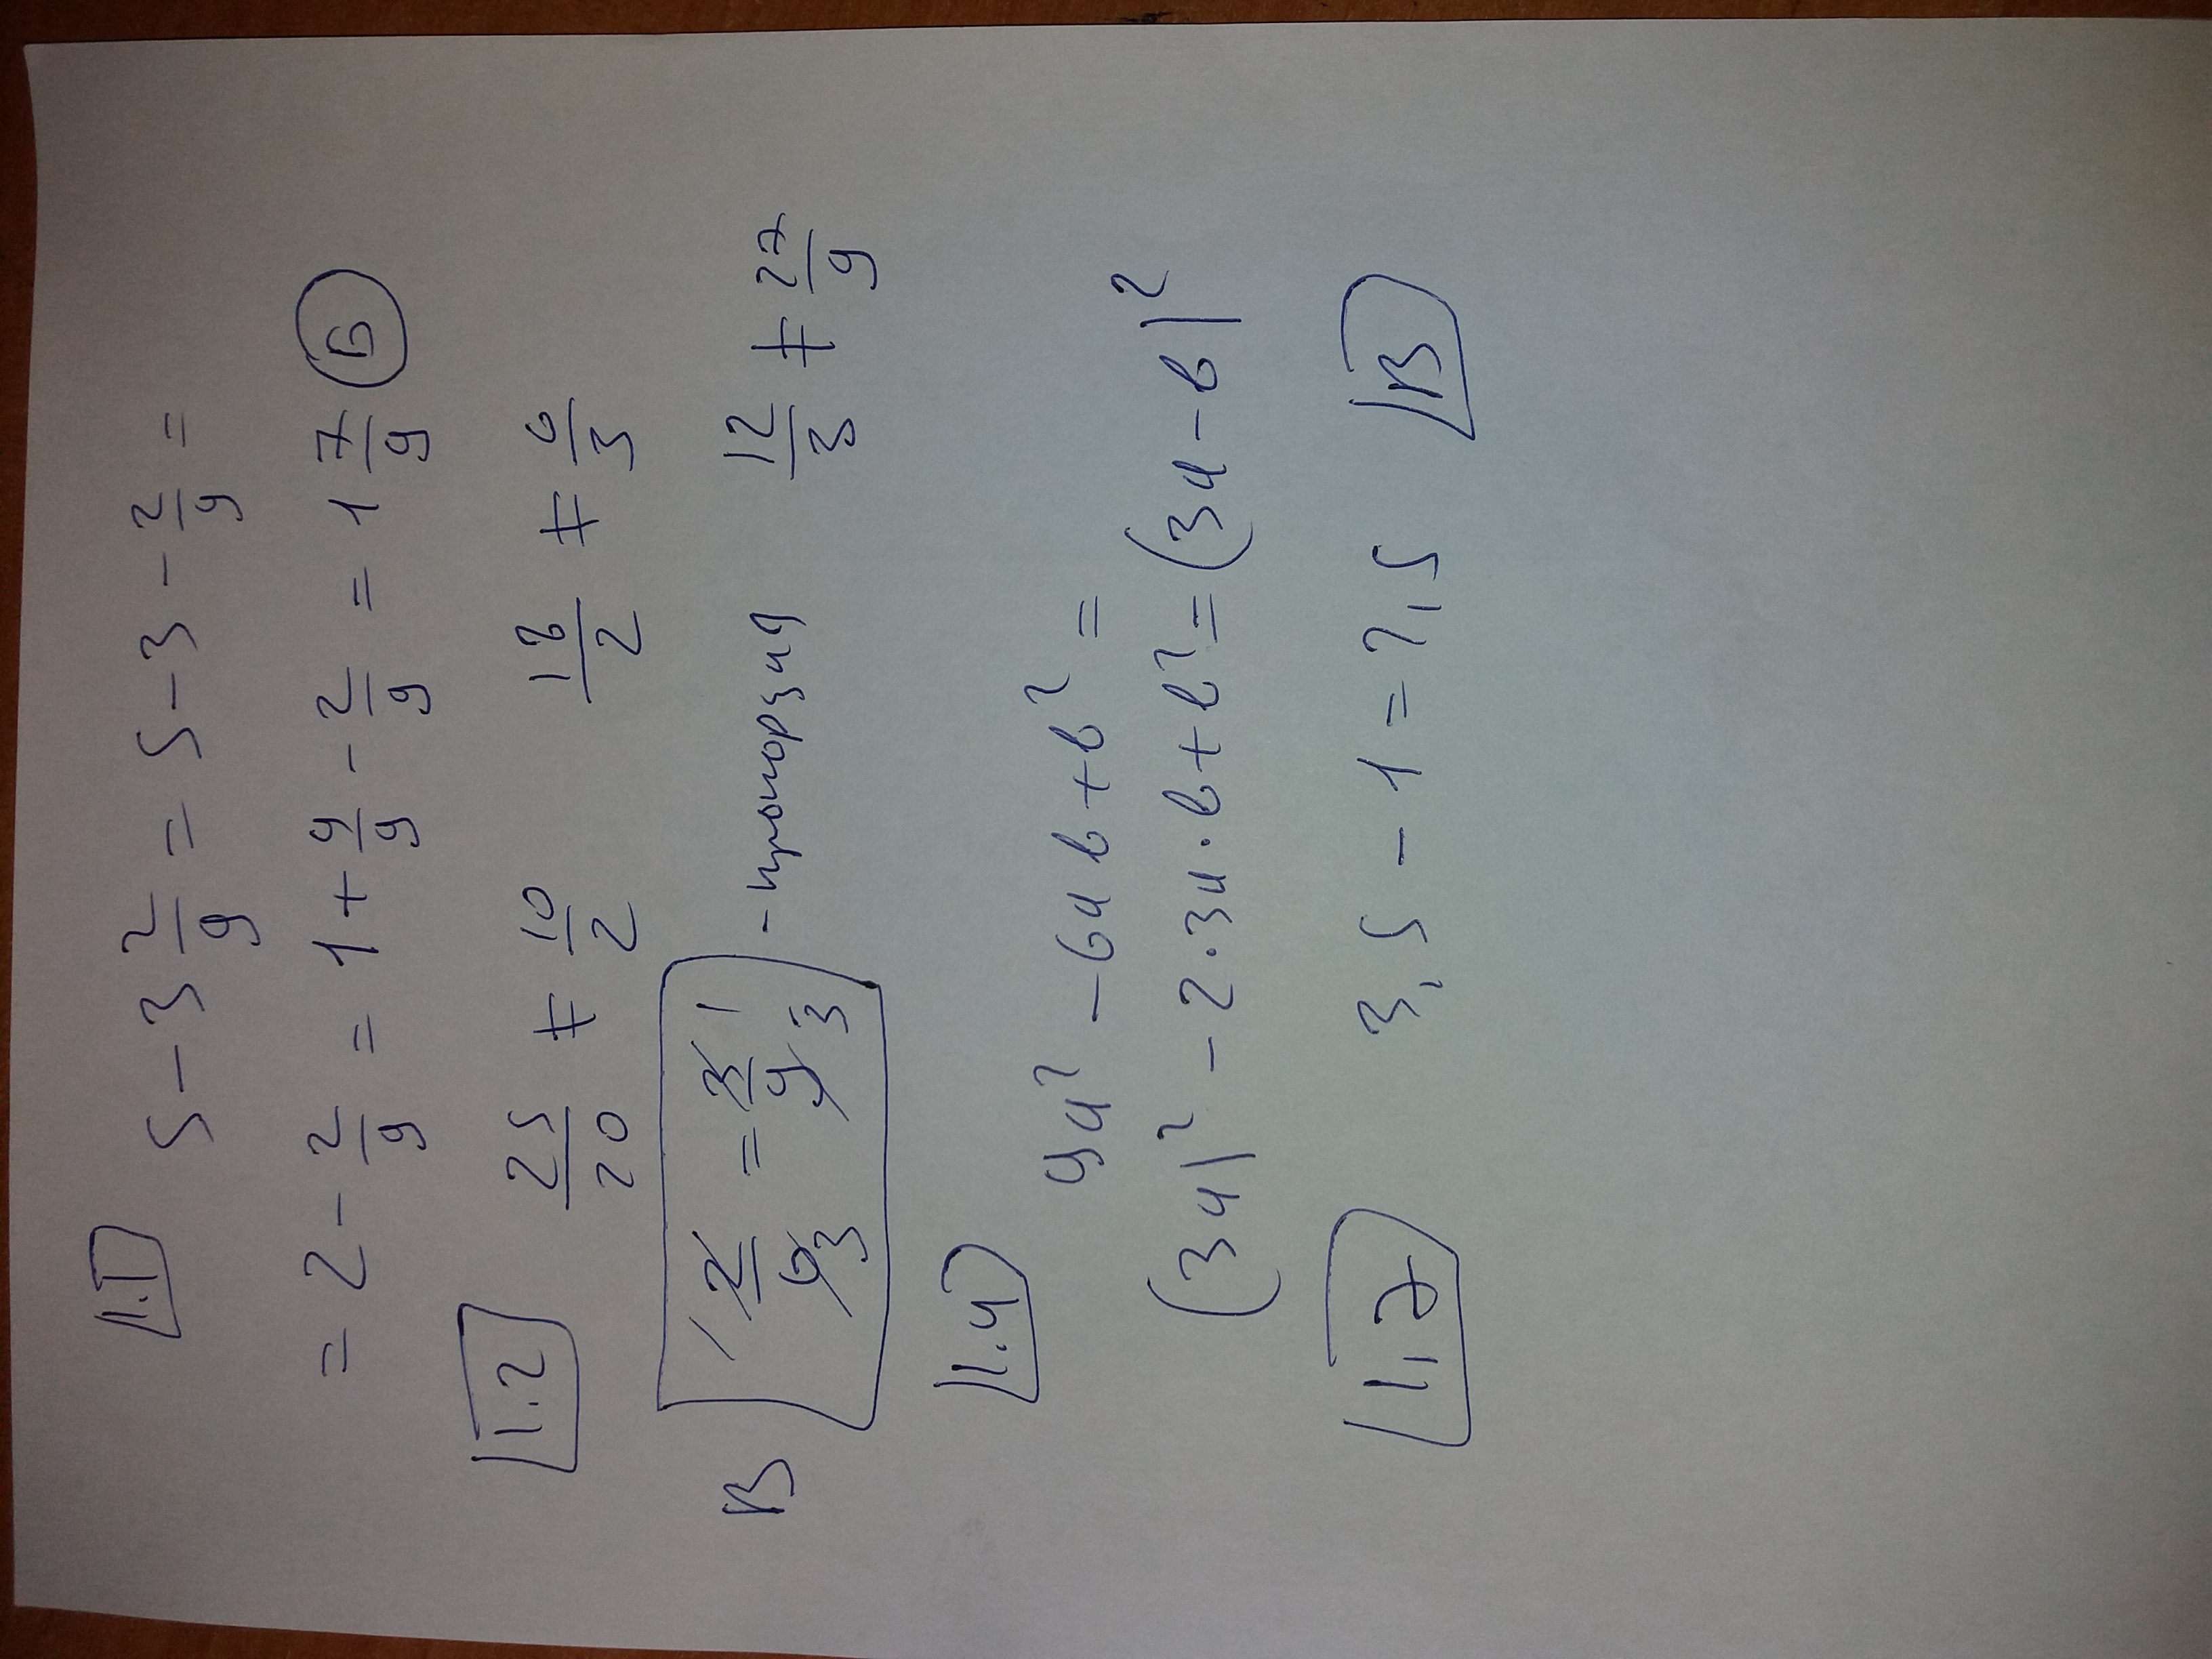 1.1 5 - 3 2/9 = 5 - 3 - 2/9 =
= 2 - 2/9 = 1 + 9/9 - 2/9 = 1 7/9 Б
1.2 25/20 ≠ 10/2 18/2 ≠ 6/3
В 1 2/6 3 = 3/9 1 3 - пропорзия 12/3 ≠ 27/9
1.4 9a² - 6ab + b² =
(3a)² - 2·3a·b + b² = (3a - b)²
1.7 3,5 - 1 = 2,5 В